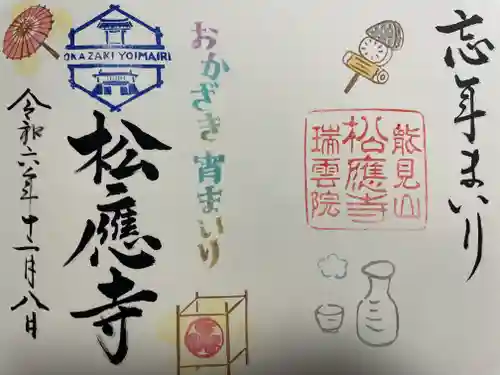 忘年まいり
能見山
松應寺
瑞雲院
おかざき宵まいり
OKAZAKI YOIMAIRI
松應寺
令和六年十一月八日